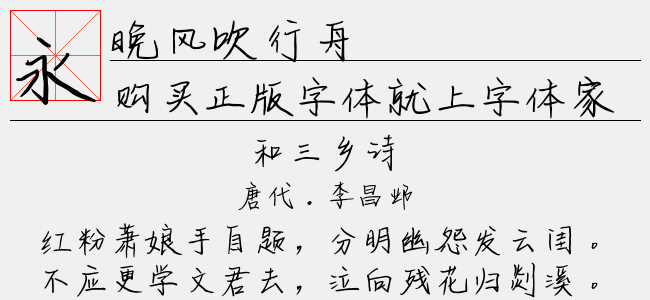 永
晚风吹行舟
购买正版字体就上字体家
和三乡诗
唐代.李昌邺
红粉萧娘手自题，分明幽怨发云闺。
不应更学文君去，泣向残花归剡溪。